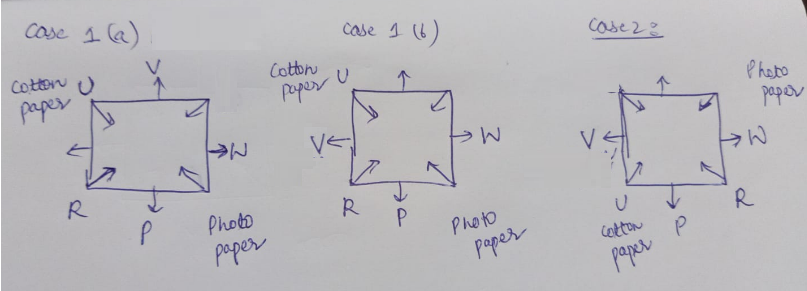 Case 1 (a)
V
Cotton
paper
U
W
R
P
Photo
paper
Case 1 (b)
Cotton
paper
U
V
W
R
P
Photo
paper
Case 2:
Photo
paper
V
W
U
Cotton
paper
P
R